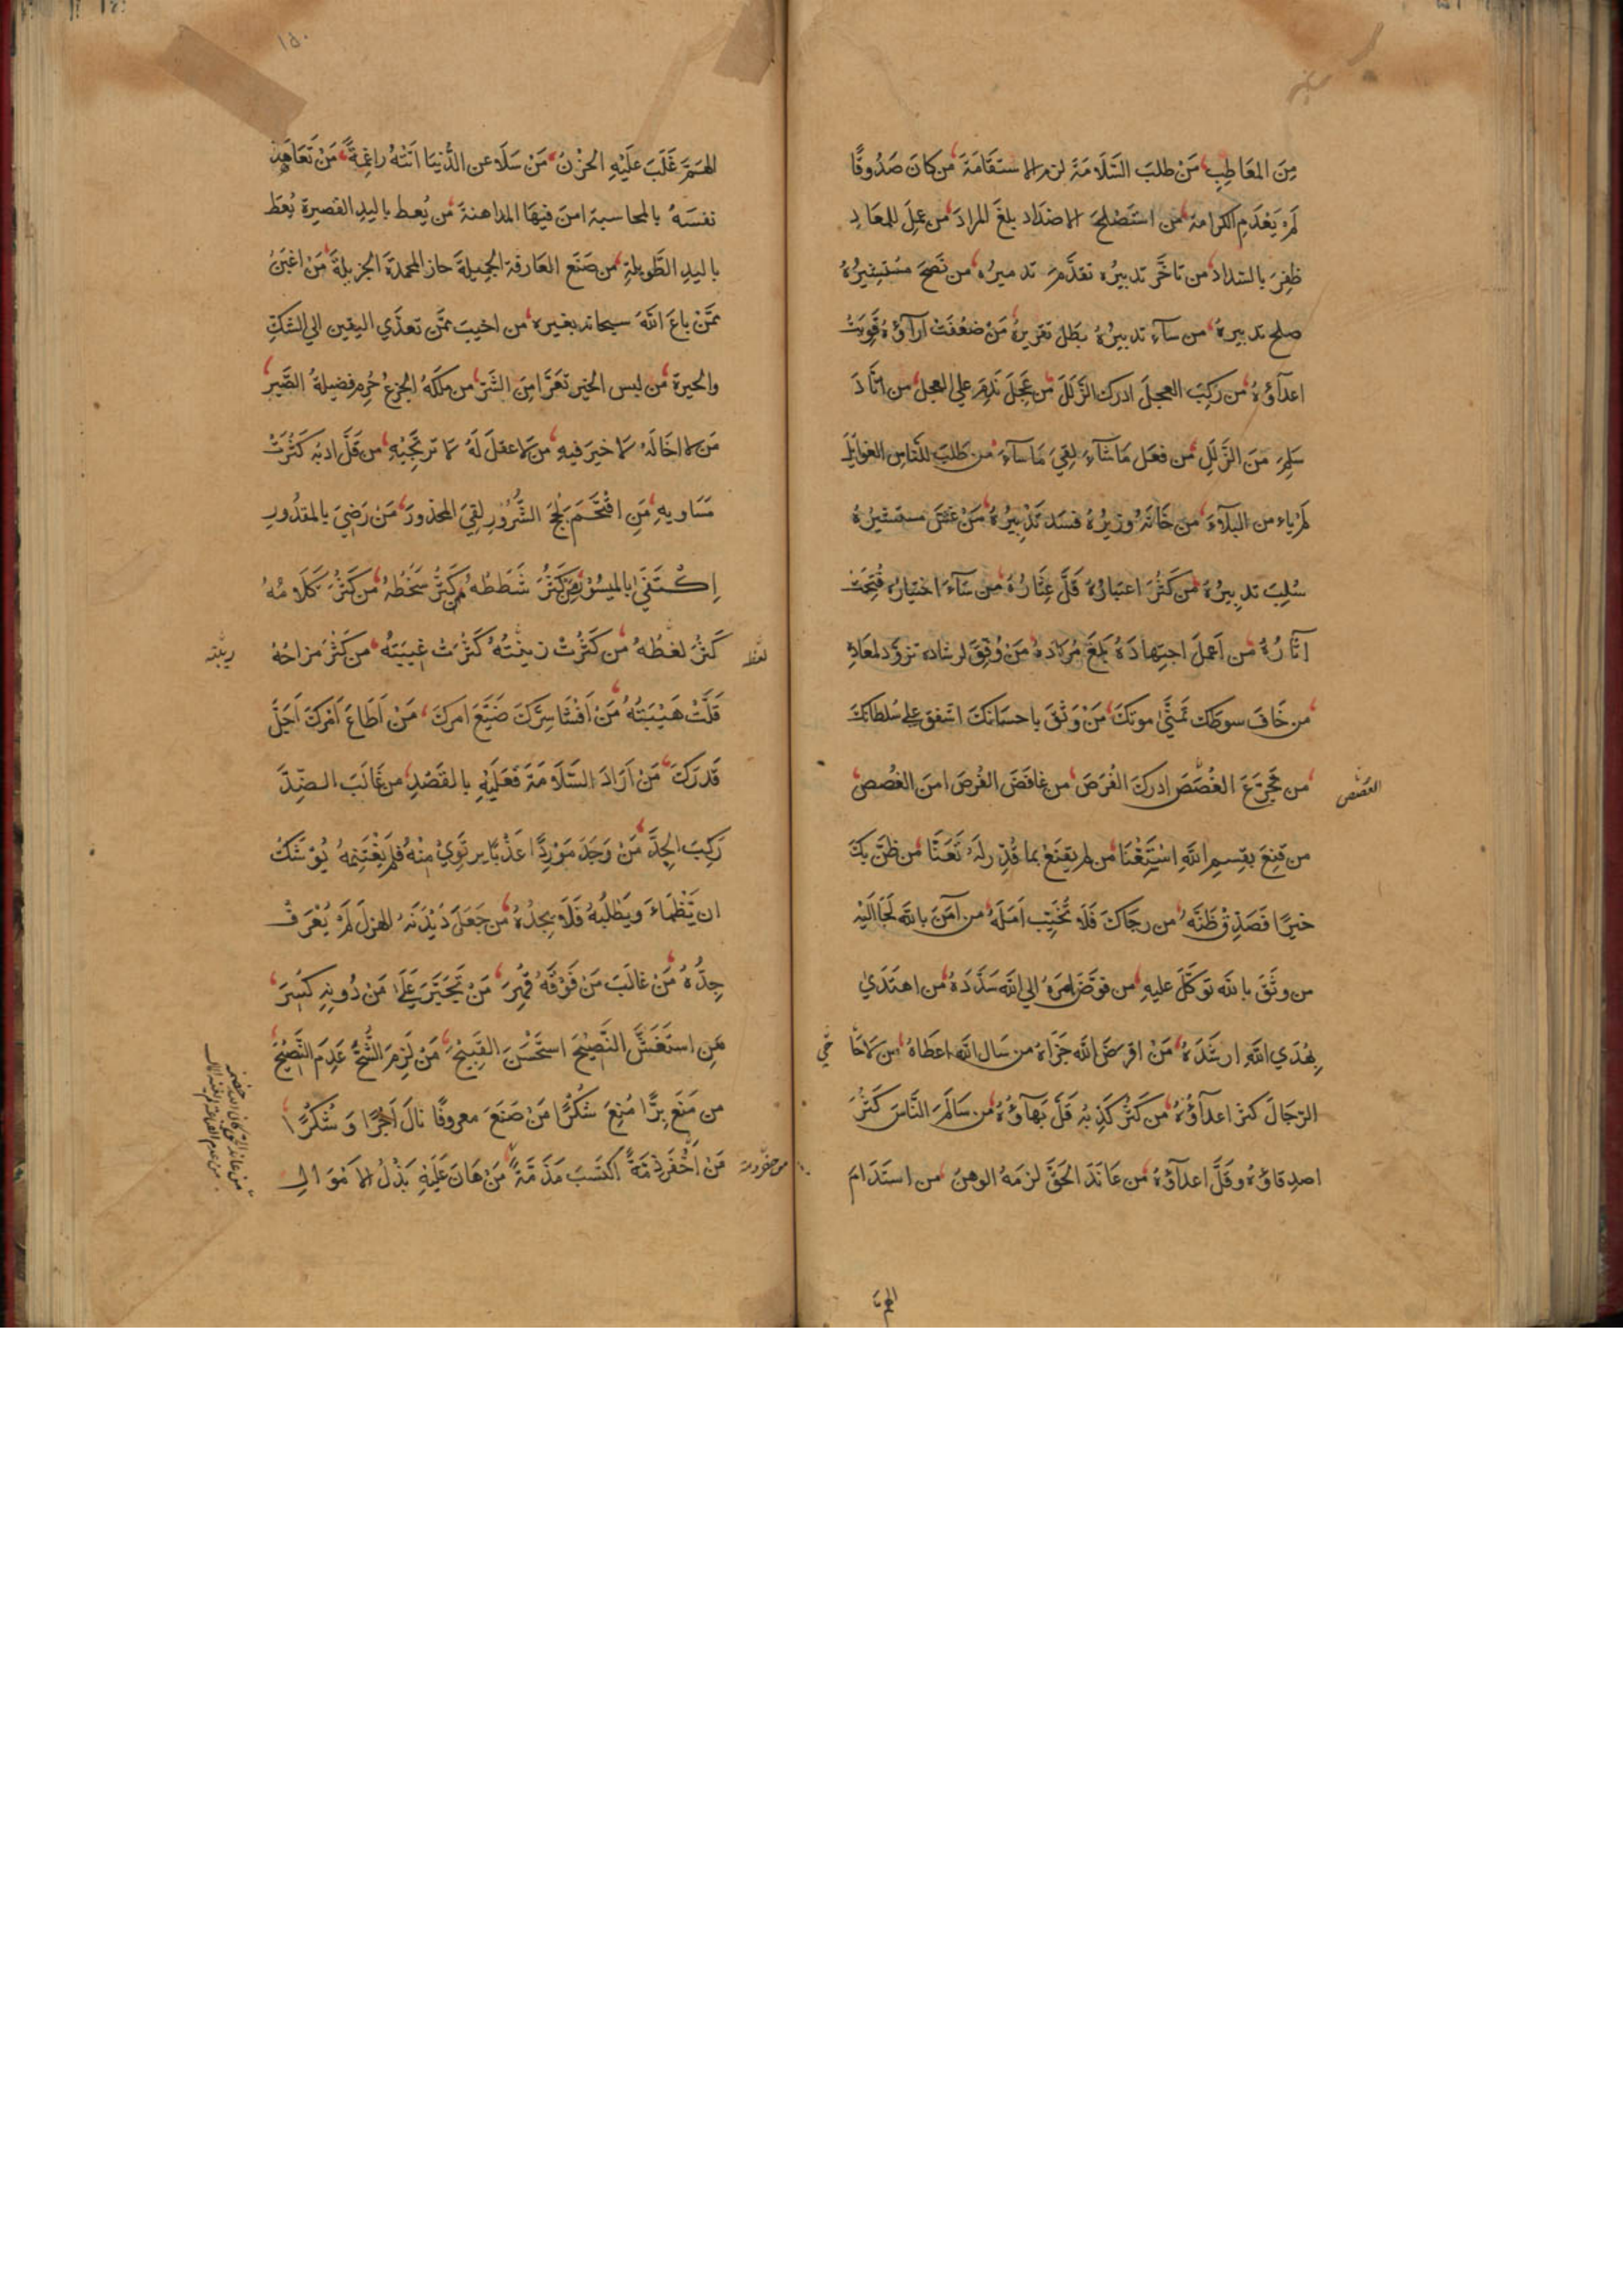 مِنَ المَعَاطِبِ مَنْ طلبَ السَّلَامَةَ لزم الاستقَامَةَ من كانَ صَدُوقًا
لَمْ يَعْدَمِ الكرامة من استَصْلحَ الاضدَاد بلغَ المرادَ من عمِلَ للمعَادِ
ظفِرَ بالسّداد من تاخَّر تدبيرُه تقدَّمَ تدميرُه من نَصَحَ مستشِيرُهُ
صلح تدبيرهُ من سآء تدبيرُهُ بَطَل تقريرهُ مَنْ ضعُفَتْ ارآؤُهُ قَوِيَتْ
اعدآؤهُ من ركِبَ العجلَ ادرك الزَّلَلَ من عَجَلَ نَدِمَ علي العجل من اتَّأدَ
سَلِمَ مِنَ الزَّلَلِ من فعَل مَا شآءَ لِقيَ مَا سآءَ من طَلبَ للنَّاسِ الغوائِلَ
لم ياء من البلآءَ من خَانَهُ وزيرُهُ فسَد تَدْبِيرُهُ مَنْ غَشَّ مستشيرَهُ
سُلِبَ تدبِيرُهُ من كَثُرَ اعتبَارُهُ قَلَّ عِثَارُهُ من سَآءَ اختيَارُه قبُحَتْ
آثَارُهُ من اَعملَ اجتِهَادَهُ بَلَغَ مُرَادَهُ مَنْ وُفِّقَ لرشَادهِ تزوَّد لمعَادِهِ
من خَافَ سوطك تمَنّٰي موتكَ مَنْ وَثقَ باحسَانكَ اشفق علي سُلطانكَ
من تجرَّعَ الغُصَصَ ادركَ الفُرَصَ من غافصَ الفُرصَ امنَ الغُصصَ
الغصَص
من قنِعَ بقِسمِ اللهِ اسْتَغْنَا من لم يقنَعْ بما قُدِّر لهُ تَعَنَّا من ظنَّ بكَ
خيرًا فَصَدِّقْ ظَنَّهُ من رجَاكَ فَلَا تُخَيِّب اَمَلَهُ من آمَنَ باللهِ لَجَأ اليْهِ
من وثَقَ بالله توكَّلَ عليهِ من فوَّضَ امرَهُ الي الله سَدَّدَهُ من اهتَدَيٰ
بِهُدَي اللهِ ارشَدَهُ مَنْ اقرضَ الله جَزَاهُ من سَال الله اعطَاهُ من لاحَا
الرّجَالَ كثرَ اعدآؤُهُ من كَثُرَ كَذِبُه قَلَّ بَهَآؤُهُ من سَالَمَ النَّاسَ كَثُرَ
اصدِقاؤهُ وقَلَّ اعدآؤهُ من عَانَدَ الحَقَّ لزمَهُ الوهنُ من استَدَامَ
الهمّ
١٥٠
الهَمَّ غَلَبَ عَلَيْهِ الحُزْنُ مَنْ سَلَا عن الدُّنيَا اتَتْهُ راغِمةً مَنْ تَعَاهَدَ
نفسَهُ بالمحاسبة امنَ فيهَا المداهنة من يُعطِ باليدِ القصيرة يُعطَ
باليدِ الطَّويلةِ من صَنَعَ العَارفة الجميلةَ حازَ المحمدةَ الجزيلةَ مَن اغبَنُ
ممَّنْ باعَ اللهَ سبحانه بغيره من اخيبَ ممَّن تعدَّي اليقين الي الشكّ
والحيرة من لبس الخير تعَرَّا مِنَ الشَّرّ من ملَكَهُ الجزعُ حُرِم فضيلةَ الصَّبر
مَن لا اخَا لَهُ لا خيرَ فيهِ من لا عقلَ لَهُ لا ترتجِيْهِ من قَلَّ ادبُه كَثُرَتْ
مَسَاويهِ مَنِ اقْتَحَمَ لُجَجَ الشُّرُورِ لقِيَ المحذورَ مَنْ رَضِيَ بالمقدُورِ
اِكْتَفَيٰ بالميسُورِ مَن كَثُرَ شَطَطُهُ كَثُرَ سَخَطُهُ من كَثُرَ كَلَامُهُ
كَثُرَ لغَطُهُ من كَثُرتْ زينَتُهُ كَثُرَتْ غيبَتُهُ من كَثُرَ مزاحُهُ
لغط
ريبته
قَلَّتْ هَيْبَتُهُ مَنْ اَفْشَا سِرَّكَ ضَيَّعَ امرَكَ مَنْ اَطَاعَ اَمْرَكَ اَجَلَّ
قَدرَكَ مَنْ اَرَادَ السَّلَامَةَ فَعَلَيْهِ بالقَصْدِ من غَالَبَ الضِّدَّ
رَكِبَ الجِدَّ مَنْ وَجَدَ مَوْرِدًا عَذْبًا يرتَوِيْ مِنْهُ فلم يَغْتَنِمهُ يُوْشَكُ
ان يَّظْمَاءَ ويَطْلبَهُ فَلَا يجِدُهُ من جَعَلَ دَيْدَنَهُ الهزلَ لَمْ يُعْرَفْ
جِدُّهُ مَنْ غالَبَ مَنْ فَوْقَهُ قُهِرَ مَنْ تَجَبَّرَ عَلَيٰ مَنْ دُونه كُسِرَ
مَنِ استَغَشَّ النَّصِيْحَ استَحْسَنَ القَبِيْحَ مَنْ لَزِمَ الشُّحَّ عَدِمَ النَّصِيْحَ
من مَنَعَ بِرًّا مُنِعَ شكْرًا مَنْ صَنَعَ معروفًا نالَ اَجْرًا وَشُكْرًا
مَنْ اَخْفَرَ ذِمّةً اكتَسَبَ مَذَمّةً مَنْ هَانَ عَلَيْهِ بَذْلُ الامْوَالِ